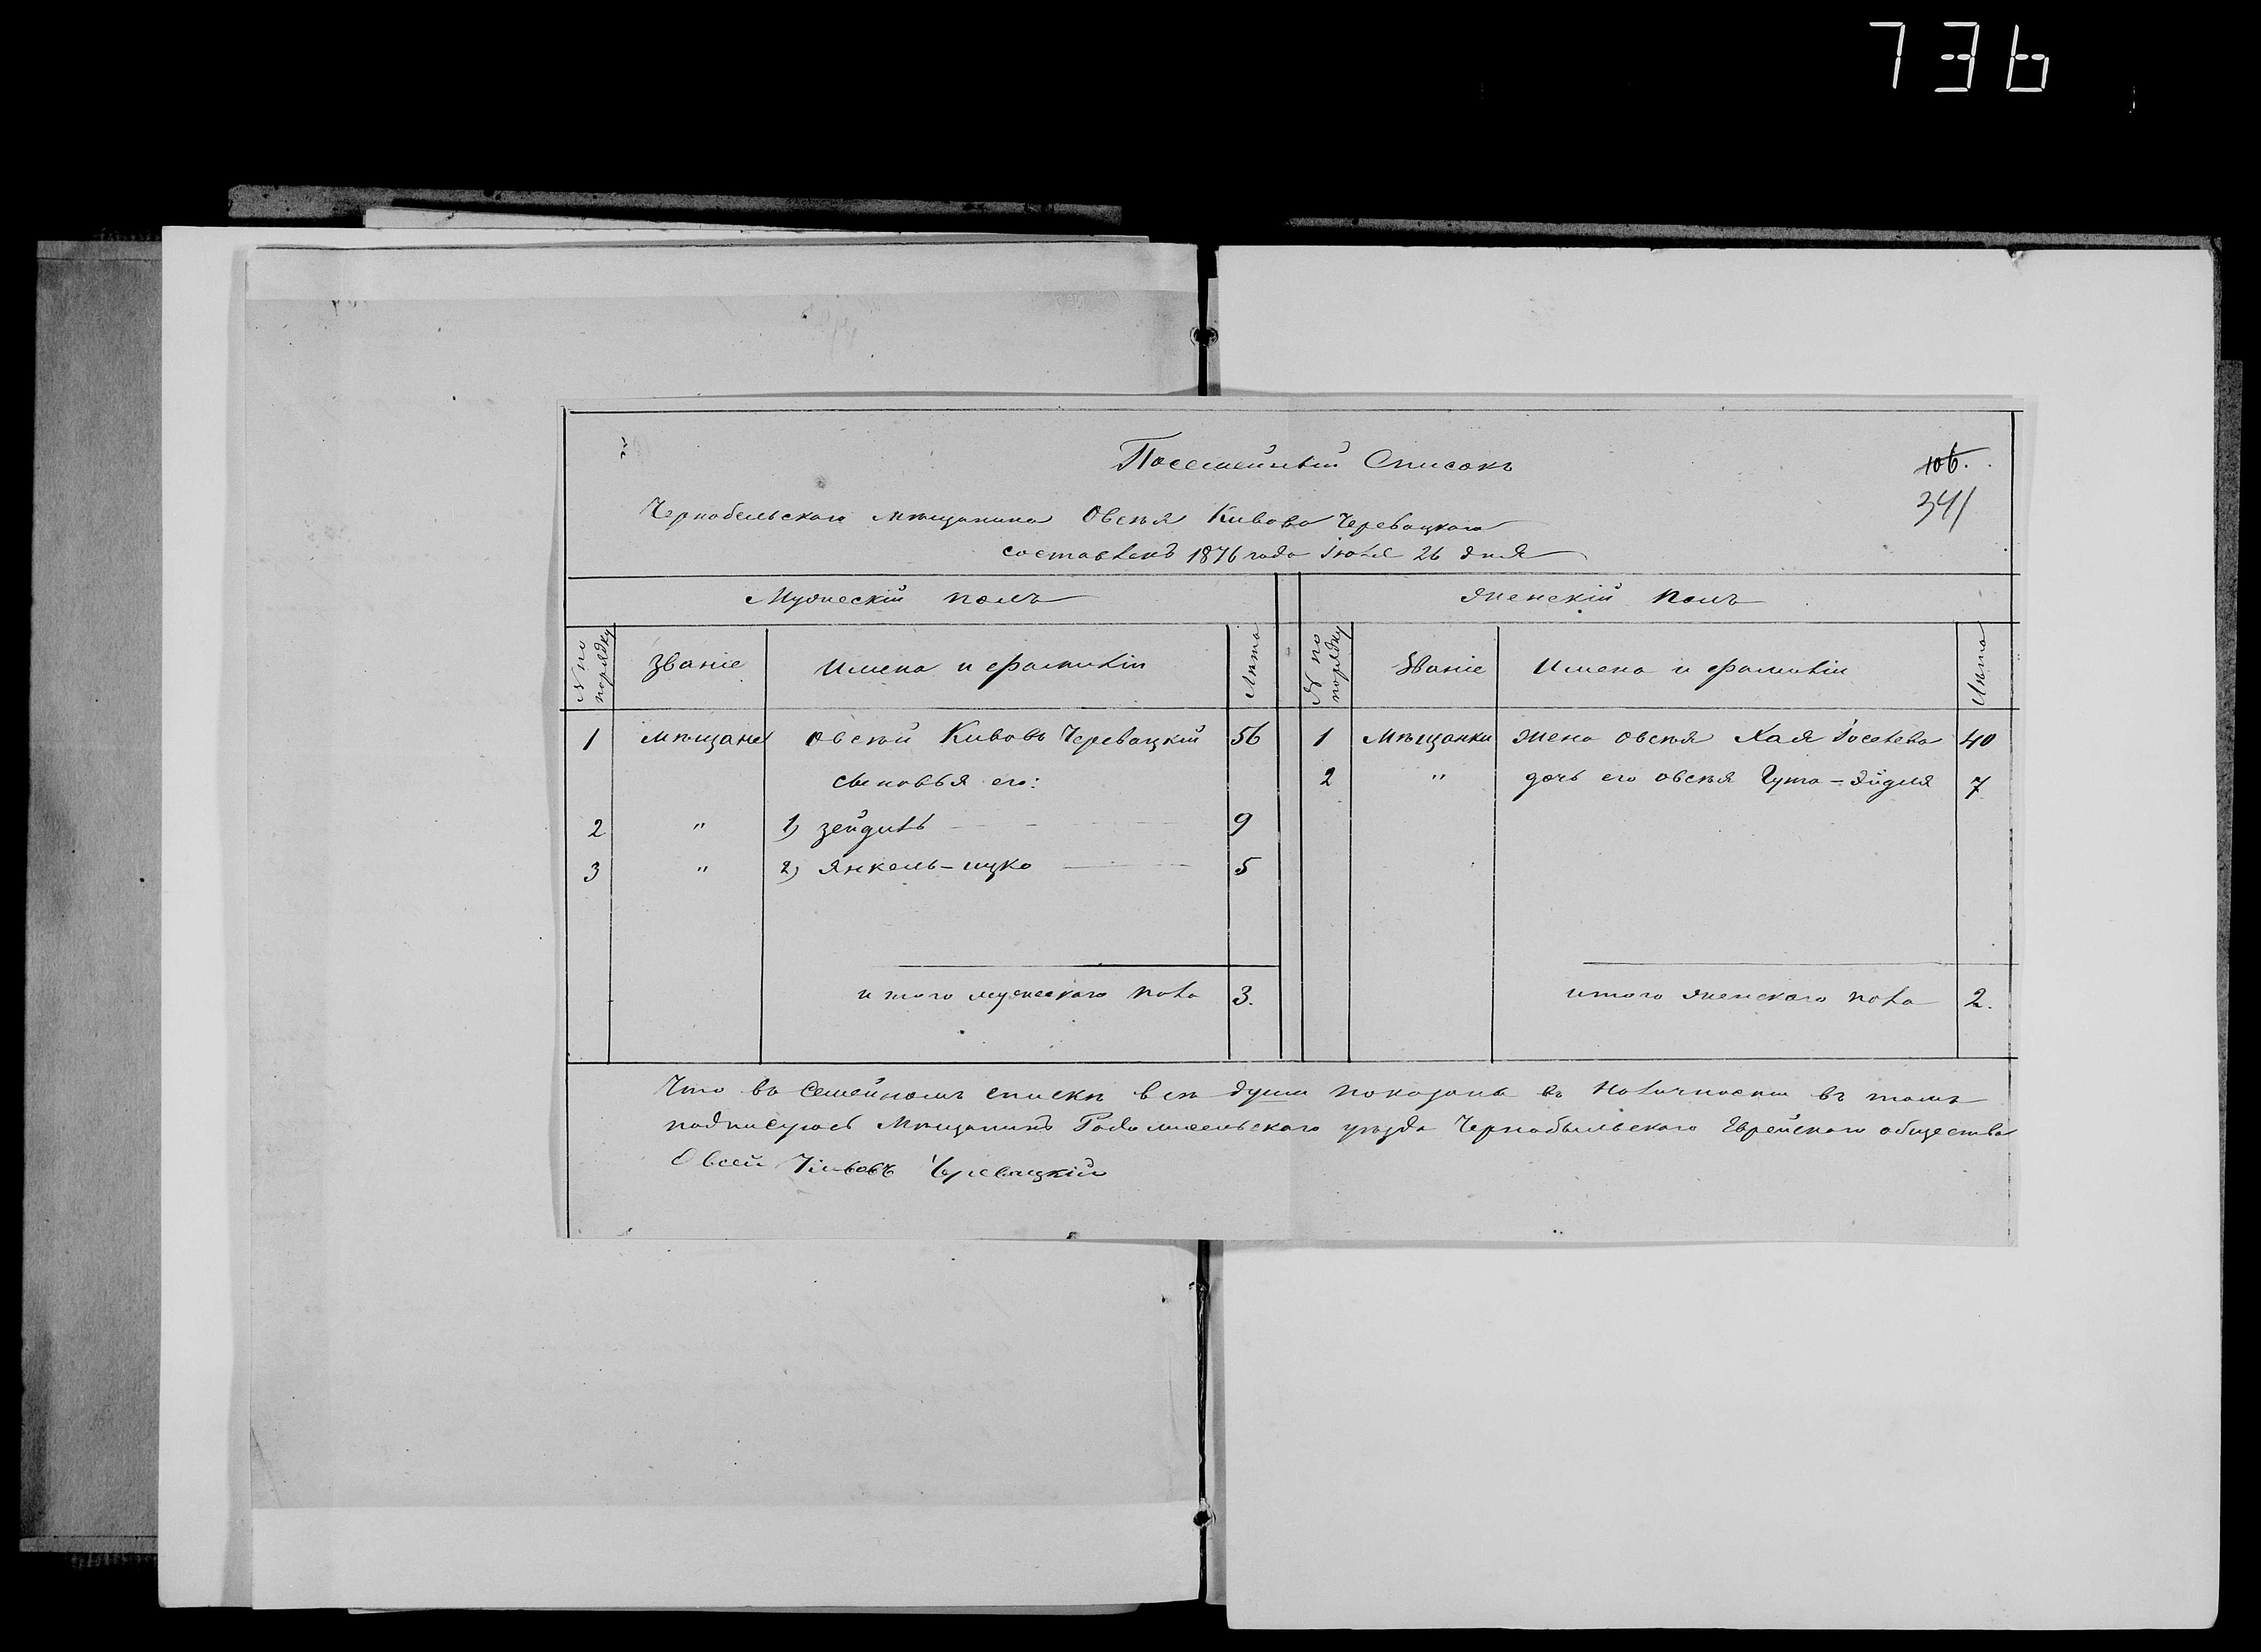 736
Посемейный Списокъ
106.
341
Чернобельскаго мѣщанина Овсѣя Кивова Черевацкаго
составленъ 1876 года Іюля 26 дня
Мужескій полъ
Женскій полъ
№ по порядку
Званіе
Имена и фамиліи
Лѣта
№ по порядку
Званіе
Имена и фамиліи
Лѣта
1 мѣщане Овсѣй Кивовъ Черевацкій 56
1 Мѣщанки жена Овсѣя Хая Іоселева 40
сыновья его:
2 " дочь его Овсѣя Гута-Эйдля 7
2 " 1) Зейдиль 9
3 " 2) Янкель-ицко 5
итого мужескаго пола 3.
итого женскаго пола 2.
Что въ Семейномъ спискѣ всѣ души показаны въ Наличности въ томъ
подписуюсь Мѣщанинъ Радомысельскаго уѣзда Чернобыльскаго Еврейскаго общества
Овсей Кивовъ Череващкій